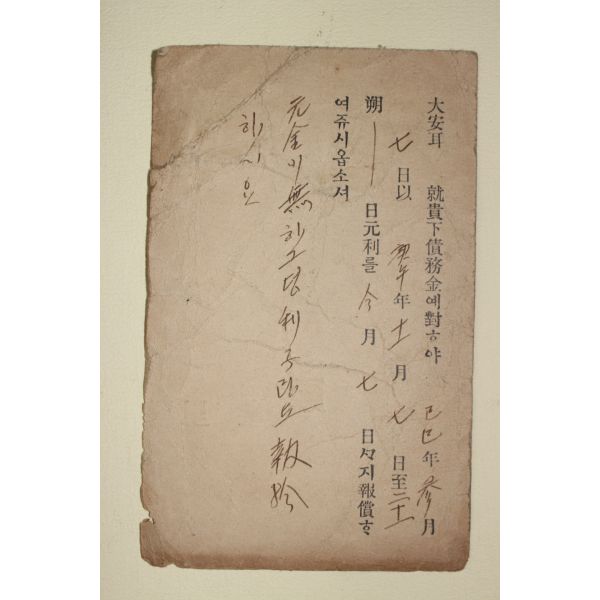 大安耳 就貴下債務金에對ᄒᆞ야 己巳年 參月
七日以 庚午年 十一月 七日至二十一
朔 日元利를 今月 七 日ᄭᆞ지報償ᄒᆞ
여쥬시옵소셔
元金이 無하그던 利子만도 報給
하시요